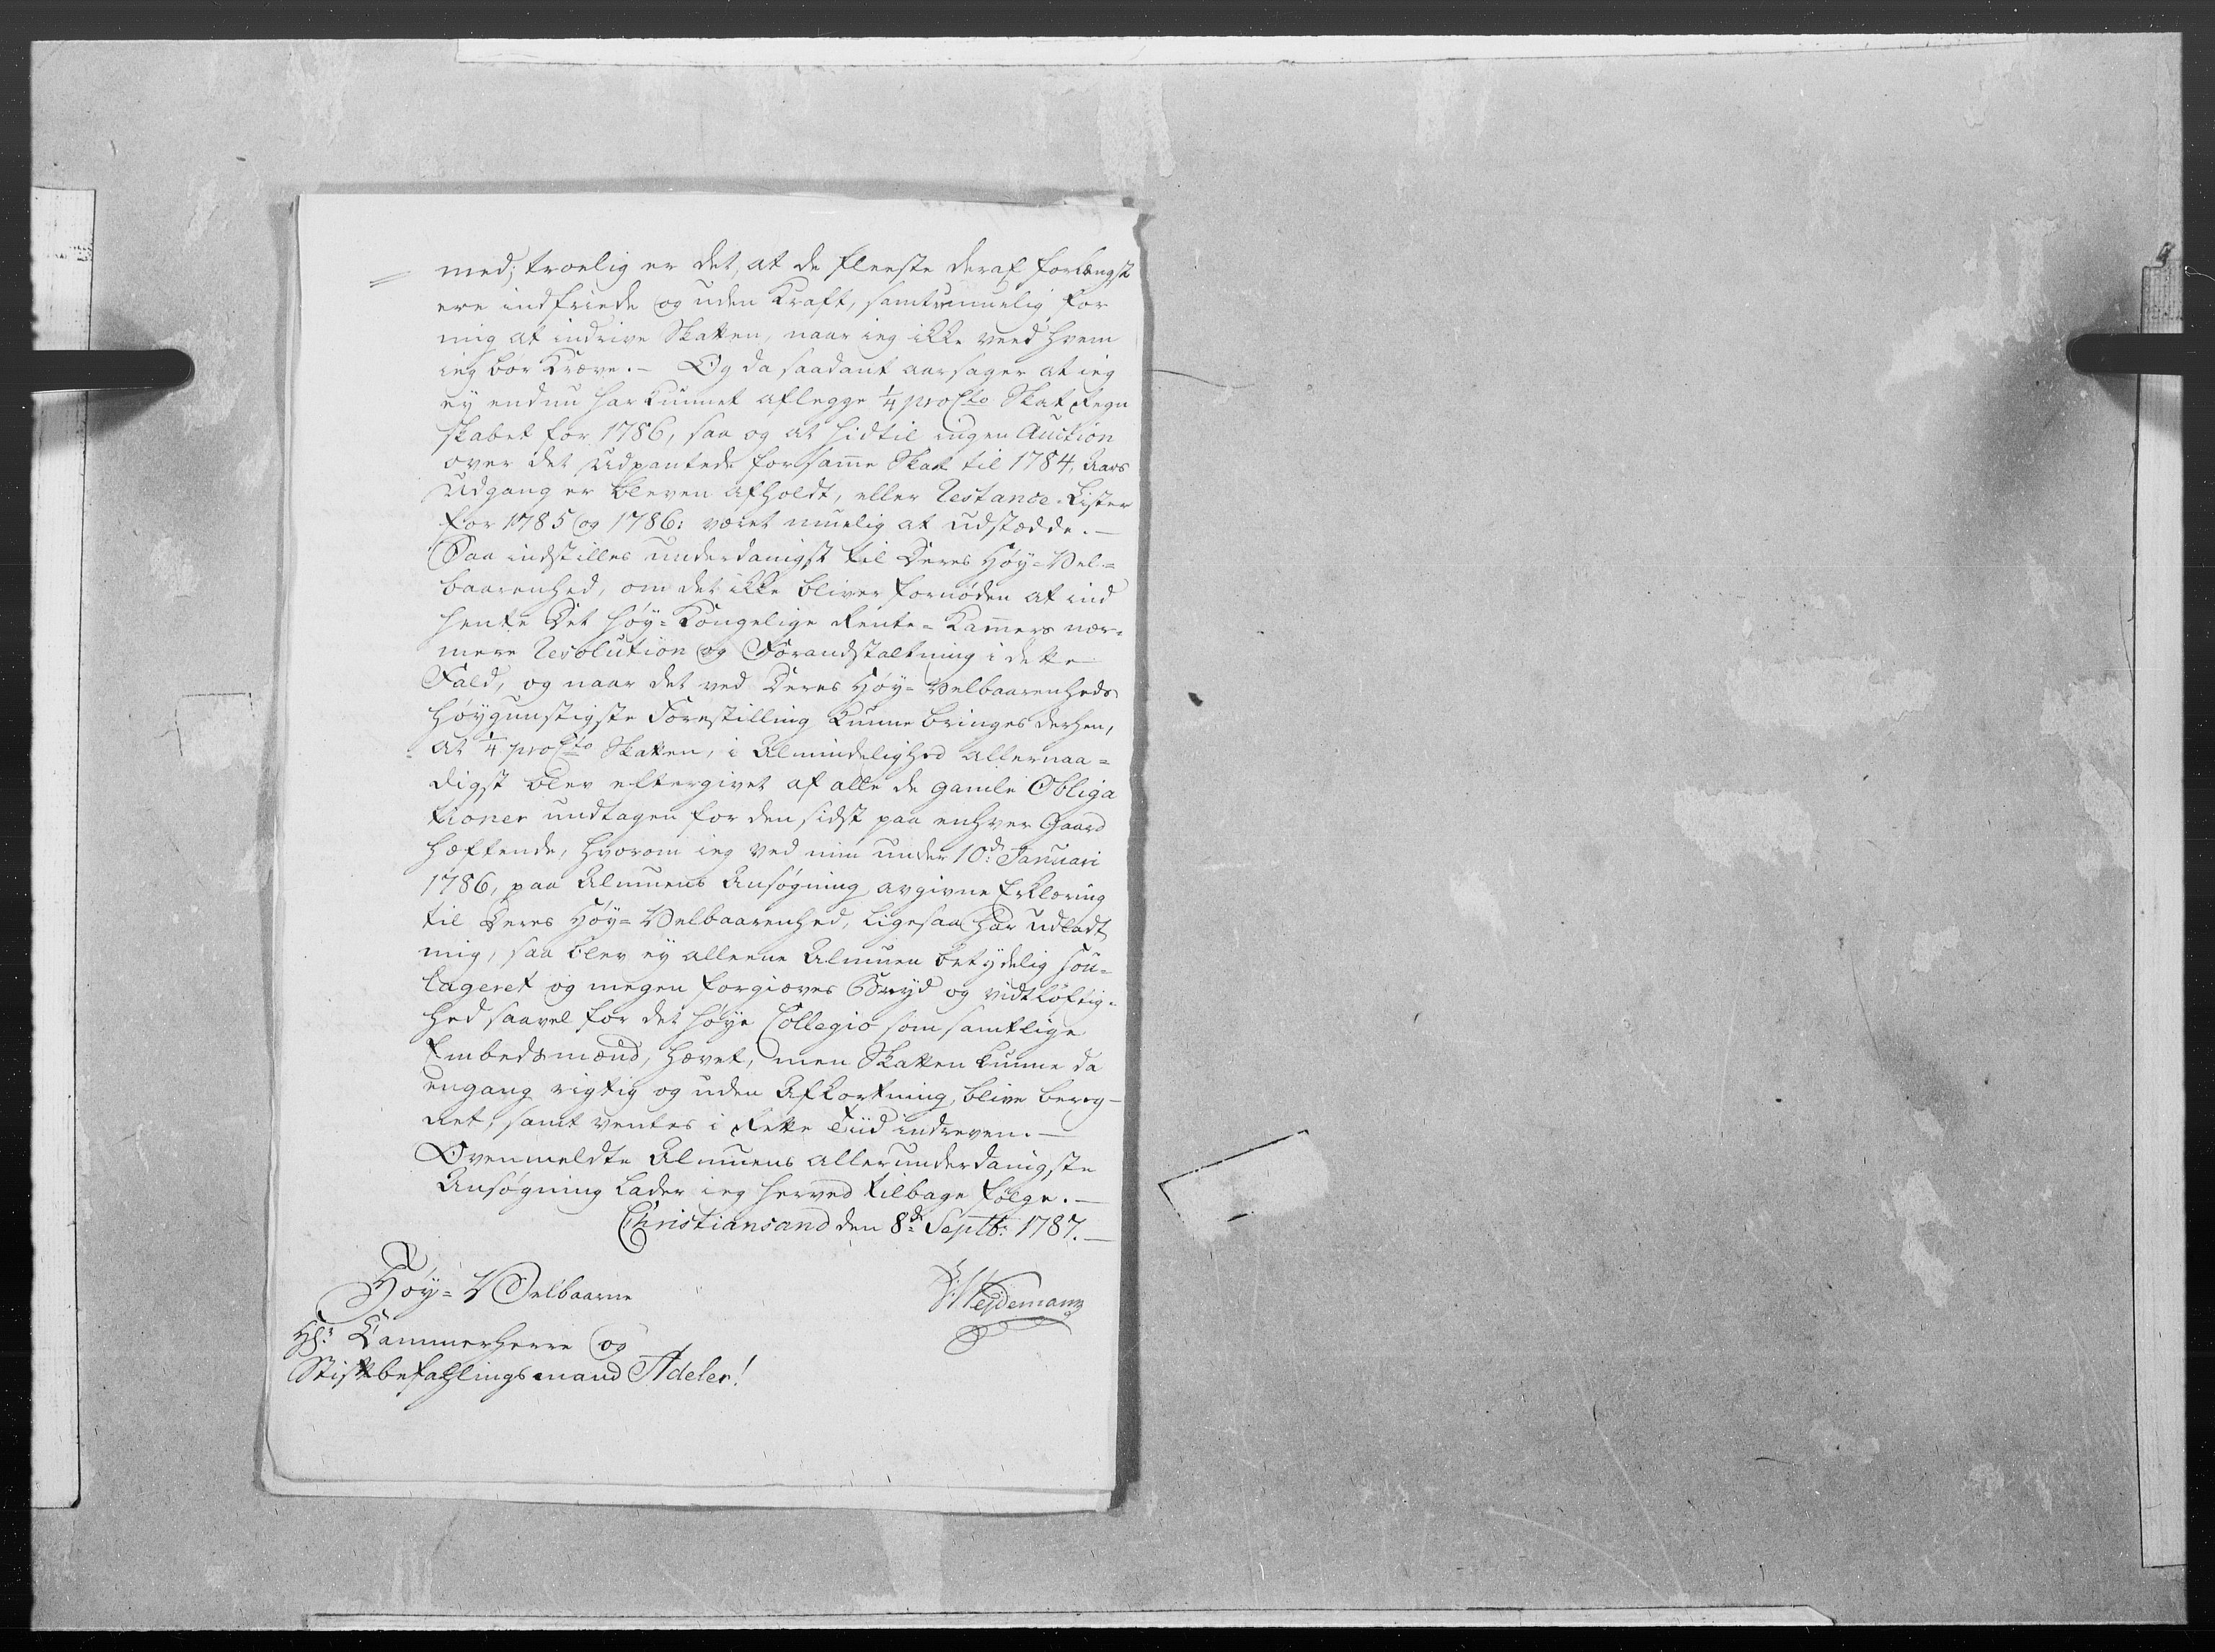 med; troelig er det, at de fleeste deraf forlængst
ere indfriede og uden Kraft, samt umuelig for
mig at indrive Skatten, naar ieg ikke veed hvem
ieg bør Kræve. – Og da saadant aarsager at ieg
ey endnu har kunnet aflegge 1/4 pro Cto Skat Regn
skabet for 1786, saa og at hidtil ingen Auction
over det Udpantede for samme Skat til 1784, Aars
Udgang er bleven afholdt, eller Restance-Lister
for 1785 og 1786: været muelig at udstædde. –
Saa indstilles underdanigst til Deres Høy-Vel-
baarenhed, om det ikke bliver fornøden at ind
hente Det høy-Kongelige Rente-Kammers nær-
mere Resolution og Forandstaltning i dette
Fald, og naar det ved Deres Høy-Velbaarenheds
høygunstigste Forestilling kunne bringes derhen,
at 1/4 pro Cto Skatten, i Almindelighed allernaa-
digst blev eftergivet af alle de gamle Obliga
tioner undtagen for den sidst paa enhver Gaard
hæftende, hvorom ieg ved min under 10de Januari
1786, paa Almuens Ansøgning, avgivne Erklæring
til Deres Høy-Velbaarenhed, ligesaa har udladt
mig, saa blev ey alleene Almuen betydelig sou-
lageret og megen forgiæves Bryd og vidtløftig-
hed saavel for det høye Collegio som samtlige
Embedsmænd, hævet, men Skatten kunne da
engang rigtig og uden Afkortning, blive bereg-
net, samt ventes i Rette Tiid indreven. –
Ovenmeldte Almuens allerunderdanigste
Ansøgning lader ieg herved tilbage følge. –
Christiansand den 8de Septb: 1787. –
Høy-Velbaarne
Weidemann
Hr: Kammerherre og
Stiftbefahlingsmand Adeler!